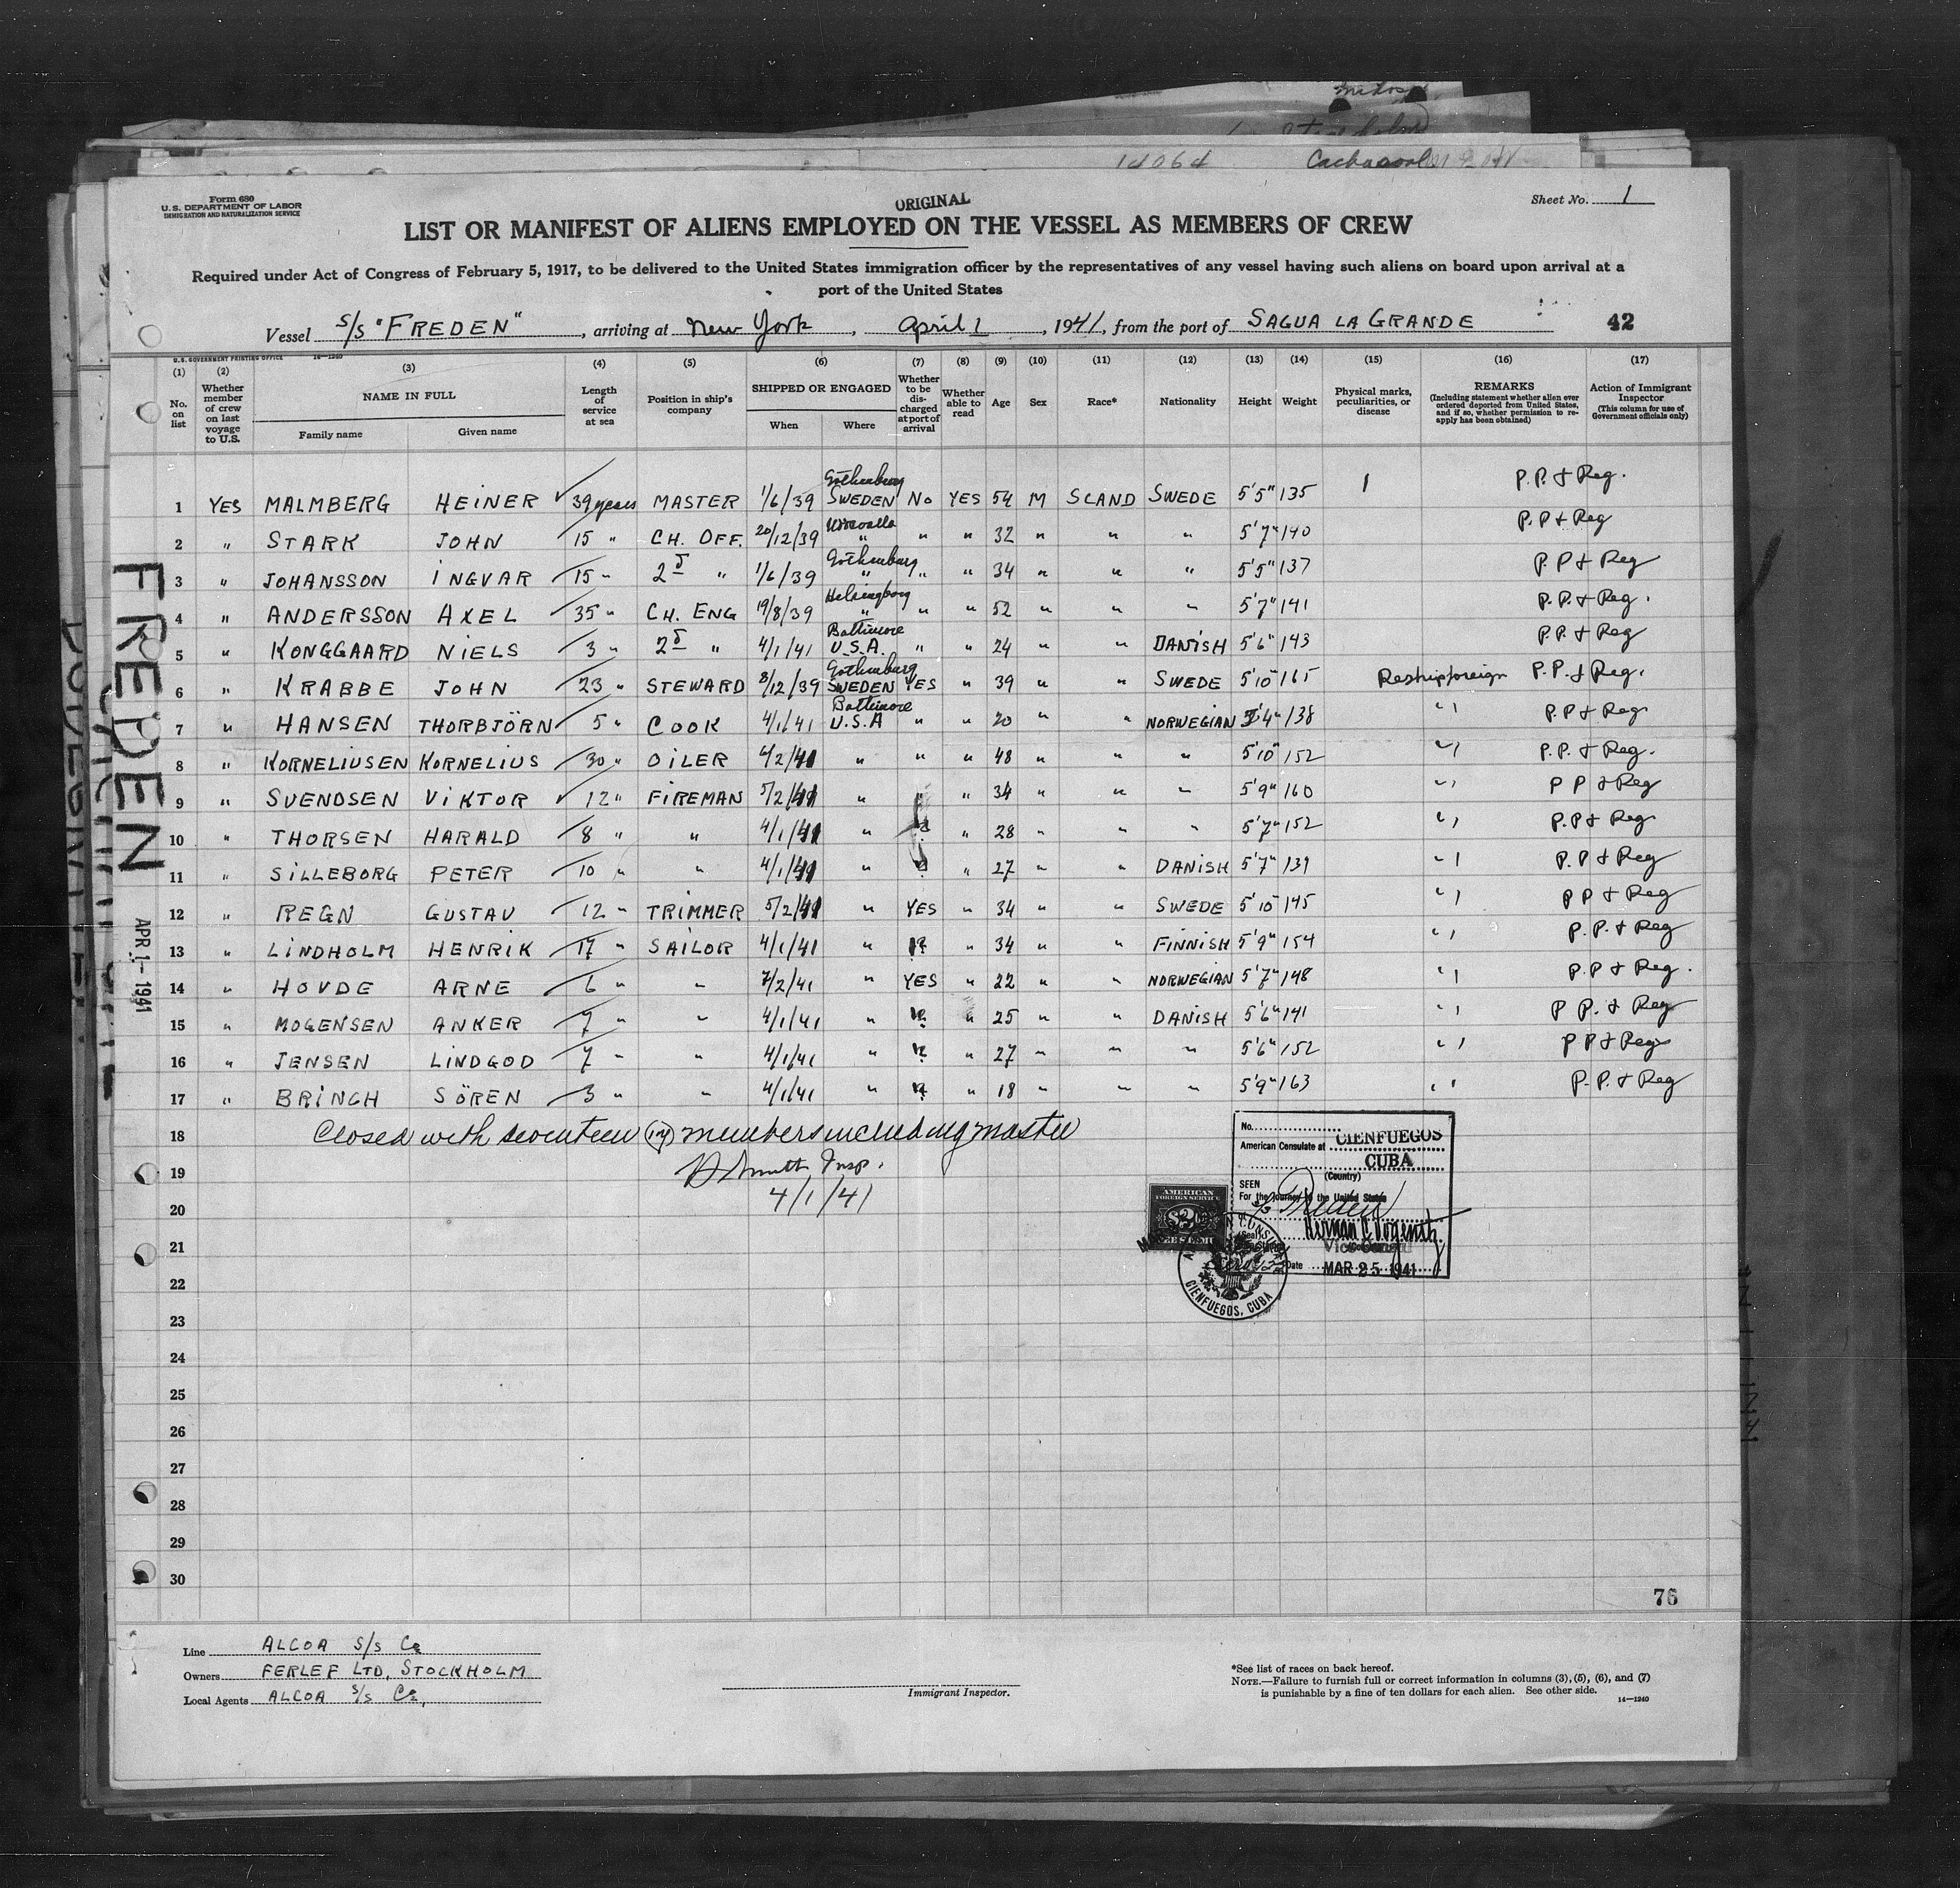 14064 Cachaool
Form 680
U.S. DEPARTMENT OF LABOR
IMMIGRATION AND NATURALIZATION SERVICE
ORIGINAL
Sheet No. 1
LIST OR MANIFEST OF ALIENS EMPLOYED ON THE VESSEL AS MEMBERS OF CREW
Required under Act of Congress of February 5, 1917, to be delivered to the United States immigration officer by the representatives of any vessel having such aliens on board upon arrival at a
port of the United States
Vessel S/S "FREDEN", arriving at New York, April 1, 1941, from the port of SAGUA LA GRANDE 42
U.S. GOVERNMENT PRINTING OFFICE 14—1240
(1) No. on list
(2) Whether member of crew on last voyage to U.S.
(3) NAME IN FULL Family name Given name
(4) Length of service at sea
(5) Position in ship's company
(6) SHIPPED OR ENGAGED When Where
(7) Whether to be discharged at port of arrival
(8) Whether able to read
(9) Age
(10) Sex
(11) Race*
(12) Nationality
(13) Height
(14) Weight
(15) Physical marks, peculiarities, or disease
(16) REMARKS (Including statement whether alien ever ordered deported from United States, and if so, whether permission to reapply has been obtained)
(17) Action of Immigrant Inspector (This column for use of Government officials only)
1 YES MALMBERG HEINER 39 years MASTER 1/6/39 Gothenburg SWEDEN NO YES 54 M SCAND SWEDE 5'5" 135 P.P. & Reg.
2 " STARK JOHN 15 " CH. OFF. 20/12/39 " " " 32 " " " 5'7" 140 P.P & Reg
3 " JOHANSSON INGVAR 15 " 2d " 1/6/39 Gothenburg " " " 34 " " " 5'5" 137 P.P & Reg
4 " ANDERSSON AXEL 35 " CH. ENG 19/8/39 Helsingborg " " " 52 " " " 5'7" 141 P.P. & Reg.
5 " KONGGAARD NIELS 3 " 2d " 4/1/41 Baltimore U.S.A. " " 24 " " DANISH 5'6" 143 P.P. & Reg
6 " KRABBE JOHN 23 " STEWARD 8/12/39 Gothenburg SWEDEN YES " 39 " " SWEDE 5'10" 165 Reship foreign P.P. & Reg.
7 " HANSEN THORBJÖRN 5 " COOK 4/1/41 Baltimore U.S.A " " 20 " " NORWEGIAN 5'4" 138 " P.P & Reg
8 " KORNELIUSEN KORNELIUS 30 " OILER 4/2/41 " " " 48 " " " 5'10" 152 " P.P. & Reg.
9 " SVENDSEN VIKTOR 12 " FIREMAN 5/2/41 " " " 34 " " " 5'9" 160 " P P & Reg
10 " THORSEN HARALD 8 " " 4/1/41 " " 28 " " " 5'7" 152 " P.P & Reg
11 " SILLEBORG PETER 10 " " 4/1/41 " " 27 " " DANISH 5'7" 139 " P.P & Reg
12 " REGN GUSTAV 12 " TRIMMER 5/2/41 " YES " 34 " " SWEDE 5'10" 145 " P P & Reg
13 " LINDHOLM HENRIK 17 " SAILOR 4/1/41 " " 34 " " FINNISH 5'9" 154 " P.P. & Reg
14 " HOVDE ARNE 6 " " 7/2/41 " YES " 22 " " NORWEGIAN 5'7" 148 " P.P & Reg.
15 " MOGENSEN ANKER 7 " " 4/1/41 " " 25 " " DANISH 5'6" 141 " P P. & Reg
16 " JENSEN LINDGOD 7 " " 4/1/41 " " 27 " " " 5'6" 152 " P P & Reg
17 " BRINGH SÖREN 3 " " 4/1/41 " " 18 " " " 5'9" 163 " P.P. & Reg
18 Closed with seventeen (17) members including master
19 Smith Insp.
20 4/1/41
21
22
23
24
25
26
27
28
29
30
FREDEN
APR 1 - 1941
No.
American Consulate at CIENFUEGOS
CUBA
(Country)
SEEN
For the journey to the United States
S/S Freden
Vice Consul
Date MAR 25 1941
AMERICAN
FOREIGN SERVICE
CIENFUEGOS, CUBA
76
Line ALCOA S/S Co
Owners FERLEF LTD, STOCKHOLM
Local Agents ALCOA S/S Co.
Immigrant Inspector.
*See list of races on back hereof.
NOTE.—Failure to furnish full or correct information in columns (3), (5), (6), and (7)
is punishable by a fine of ten dollars for each alien. See other side.
14—1240